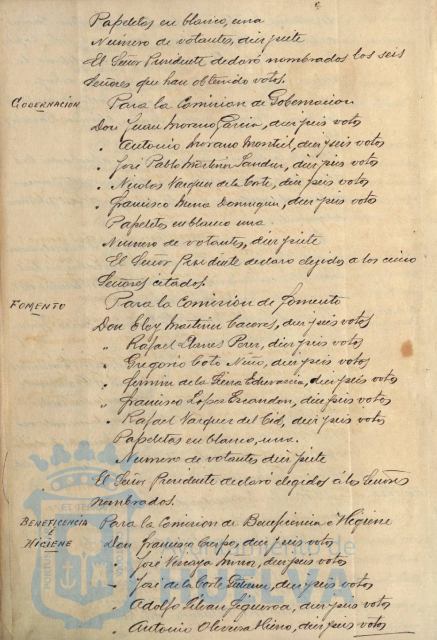 Papeletas en blanco, una
Numero de votantes, diez y siete
El Señor Presidente declaró nombrados los seis
Señores que han obtenido votos.
GOBERNACIÓN
Para la Comision de Gobernacion
Don Juan Moreno Garcia, diez y seis votos
" Antonio Morano Montiel, diez y seis votos
" José Pablo Martinez Sanchez, diez y seis votos
" Nicolas Vazquez de la Corte, diez y seis votos
" Francisco Mena Dominguez, diez y seis votos
Papeletas en blanco una
Numero de votantes, diez y siete
El Señor Presidente declaro elegidos a los cinco
Señores citados.
FOMENTO
Para la Comision de Fomento
Don Eloy Martinez Caceres, diez y seis votos
" Rafael Llanes Perez, diez y seis votos
" Gregorio Coto Niño, diez y seis votos
" Fermin de la Sierra Echevarria, diez y seis votos
" Francisco Lopez Escandon, diez y seis votos
" Rafael Vazquez del Cid, diez y seis votos
Papeletas en blanco, una.
Numero de votantes diez y siete
El Señor Presidente declaro elegidos á los Señores
nombrados.
BENEFICENCIA
É
HIGIENE
Para la Comision de Beneficencia é Higiene
Don Francisco Crespo, diez y seis votos
" José diez y seis votos
" José de la Corte Gutierrez, diez y seis votos
" Adolfo Figueroa, diez y seis votos
" Antonio Oliveira Hierro, diez y seis votos
Ayuntamiento de
HUELVA